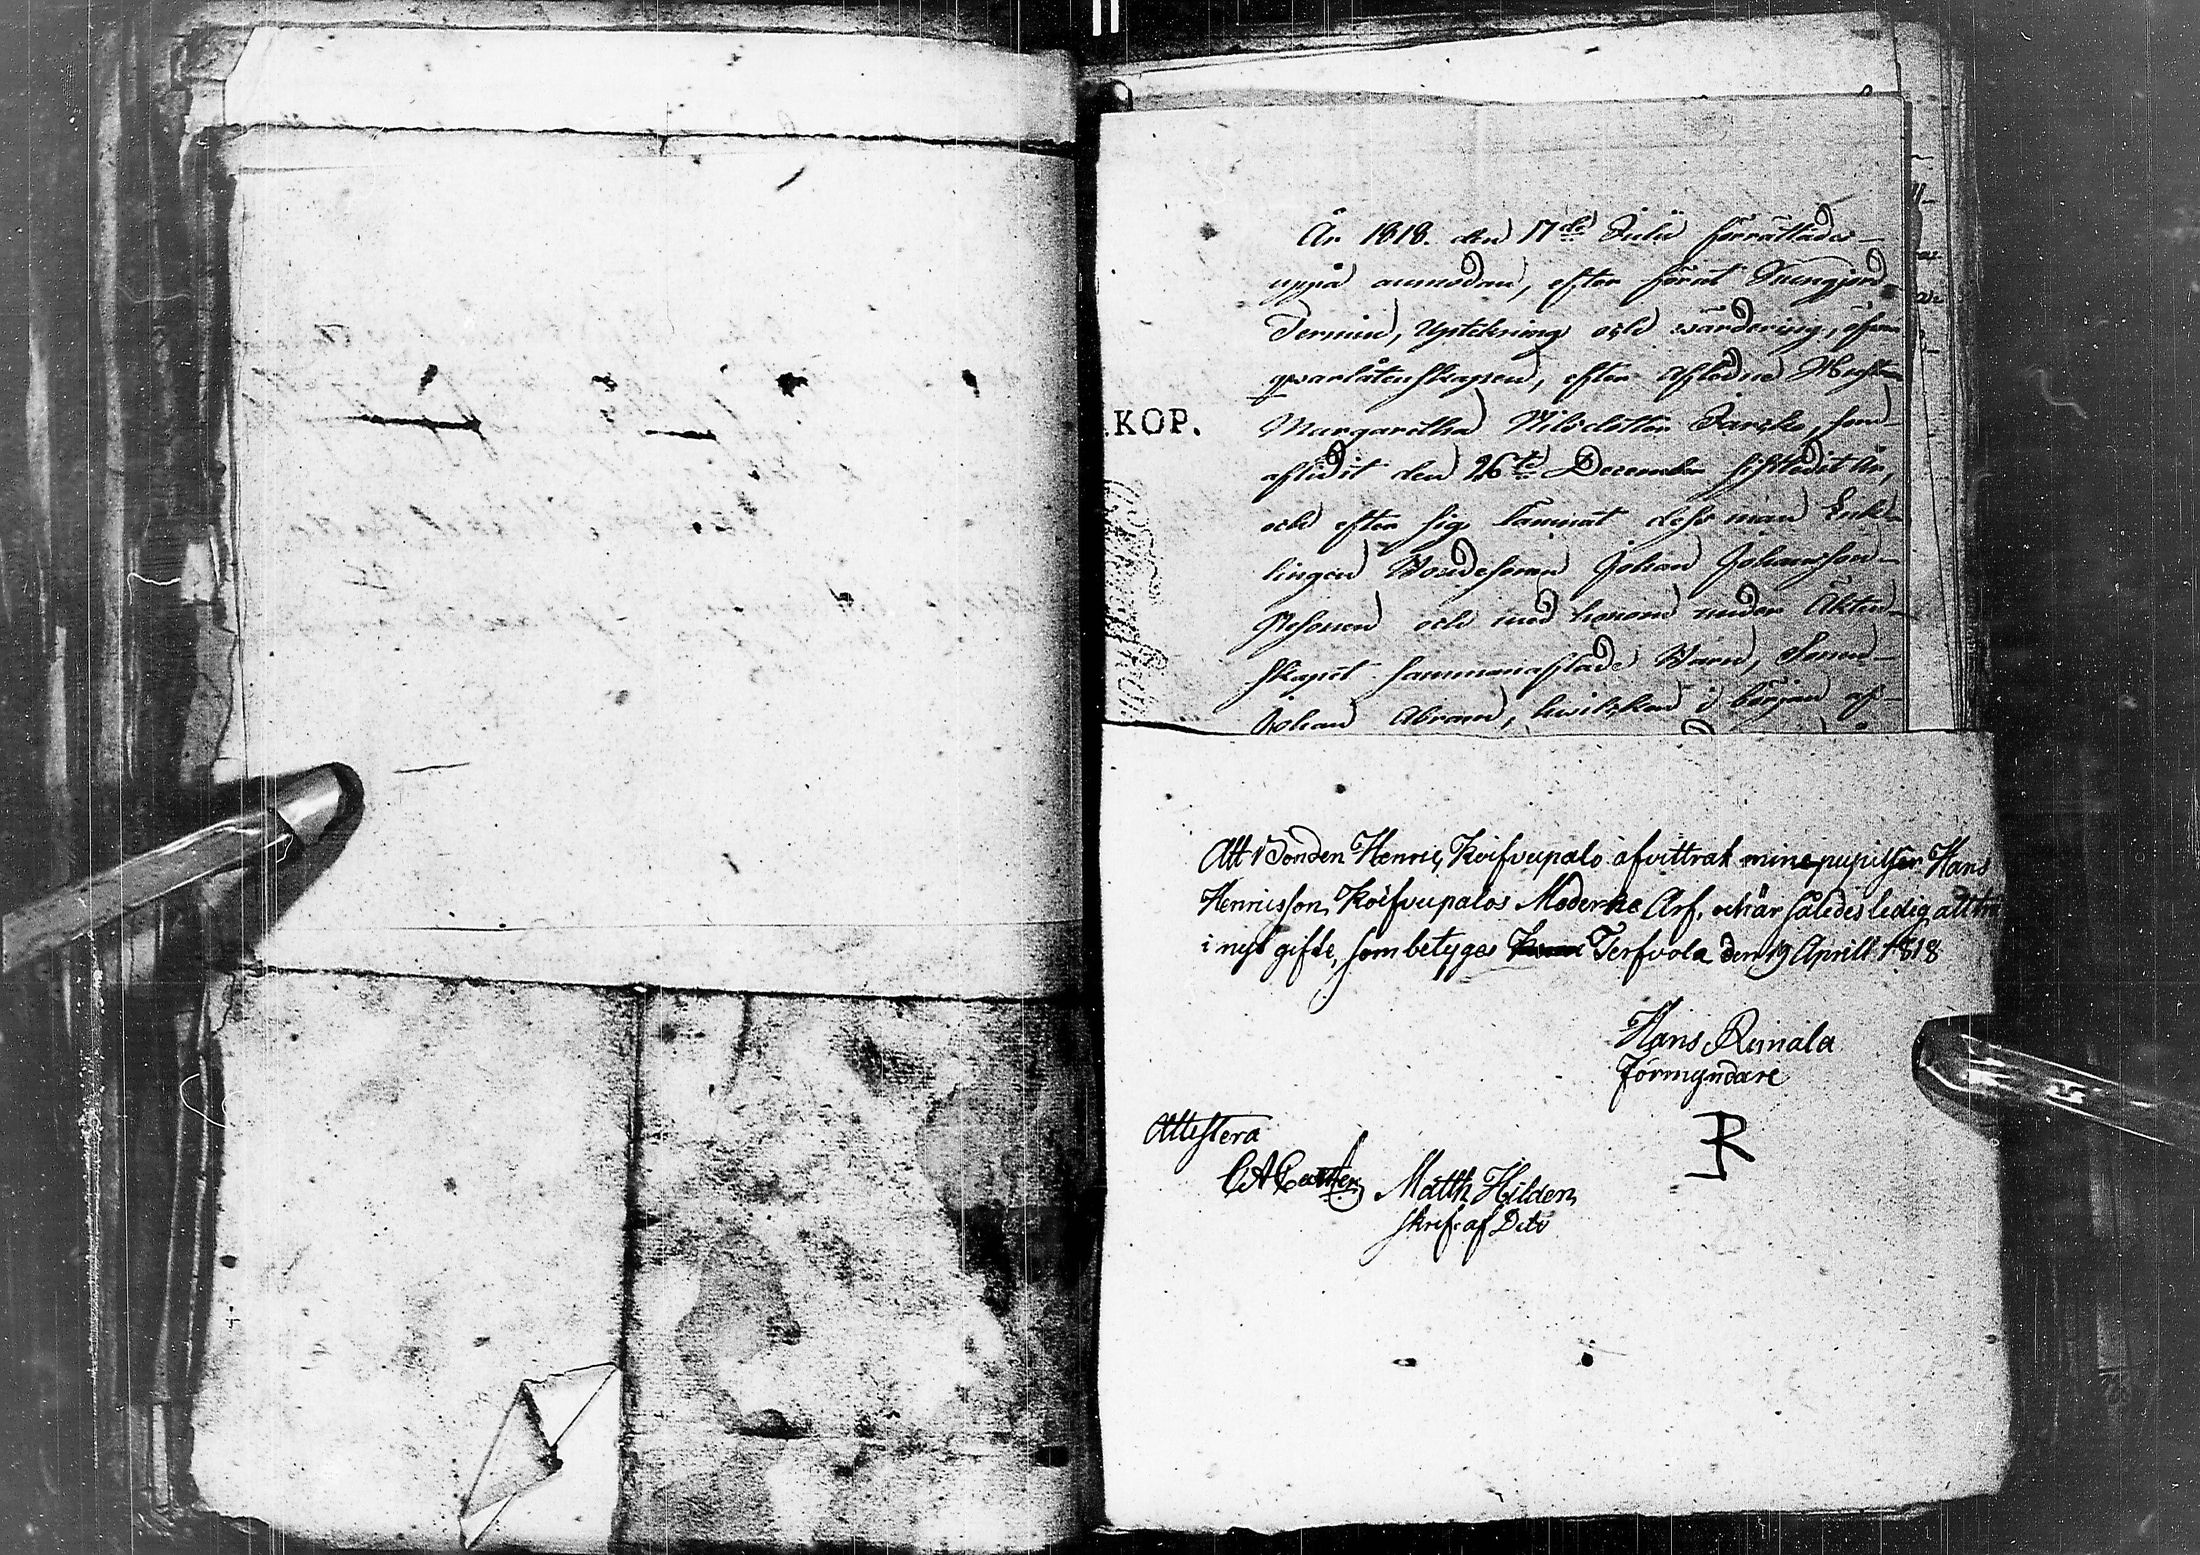 År 1818. den 17de Julii förrättades
uppå anmodan, efter förut kungjord
Termin, Uptekning och värdering, öfver
qvarlåtenskapen, efter aflidne
Margaretha Nilsdotter som
aflidit den 26te December sistledit År,
och efter sig lämnat dess man Enk-
lingen Bondesonen Johan Johansson
och med honom under Äkten-
skapet sammanaflade Barn, Sonen
Johan Abram, hvilken i början af
KOP.
Att Bonden Henric Koifvupalo afvittrat min pupill Hans
Henricsson Koifvupalos Moderne Arf, och är således ledig att
i nyt gifte, som betyges Terfvola den 19 Aprill 1818
Hans Rimala
Förmyndare
Attestera
Matth Hilden
skrif. af Dito